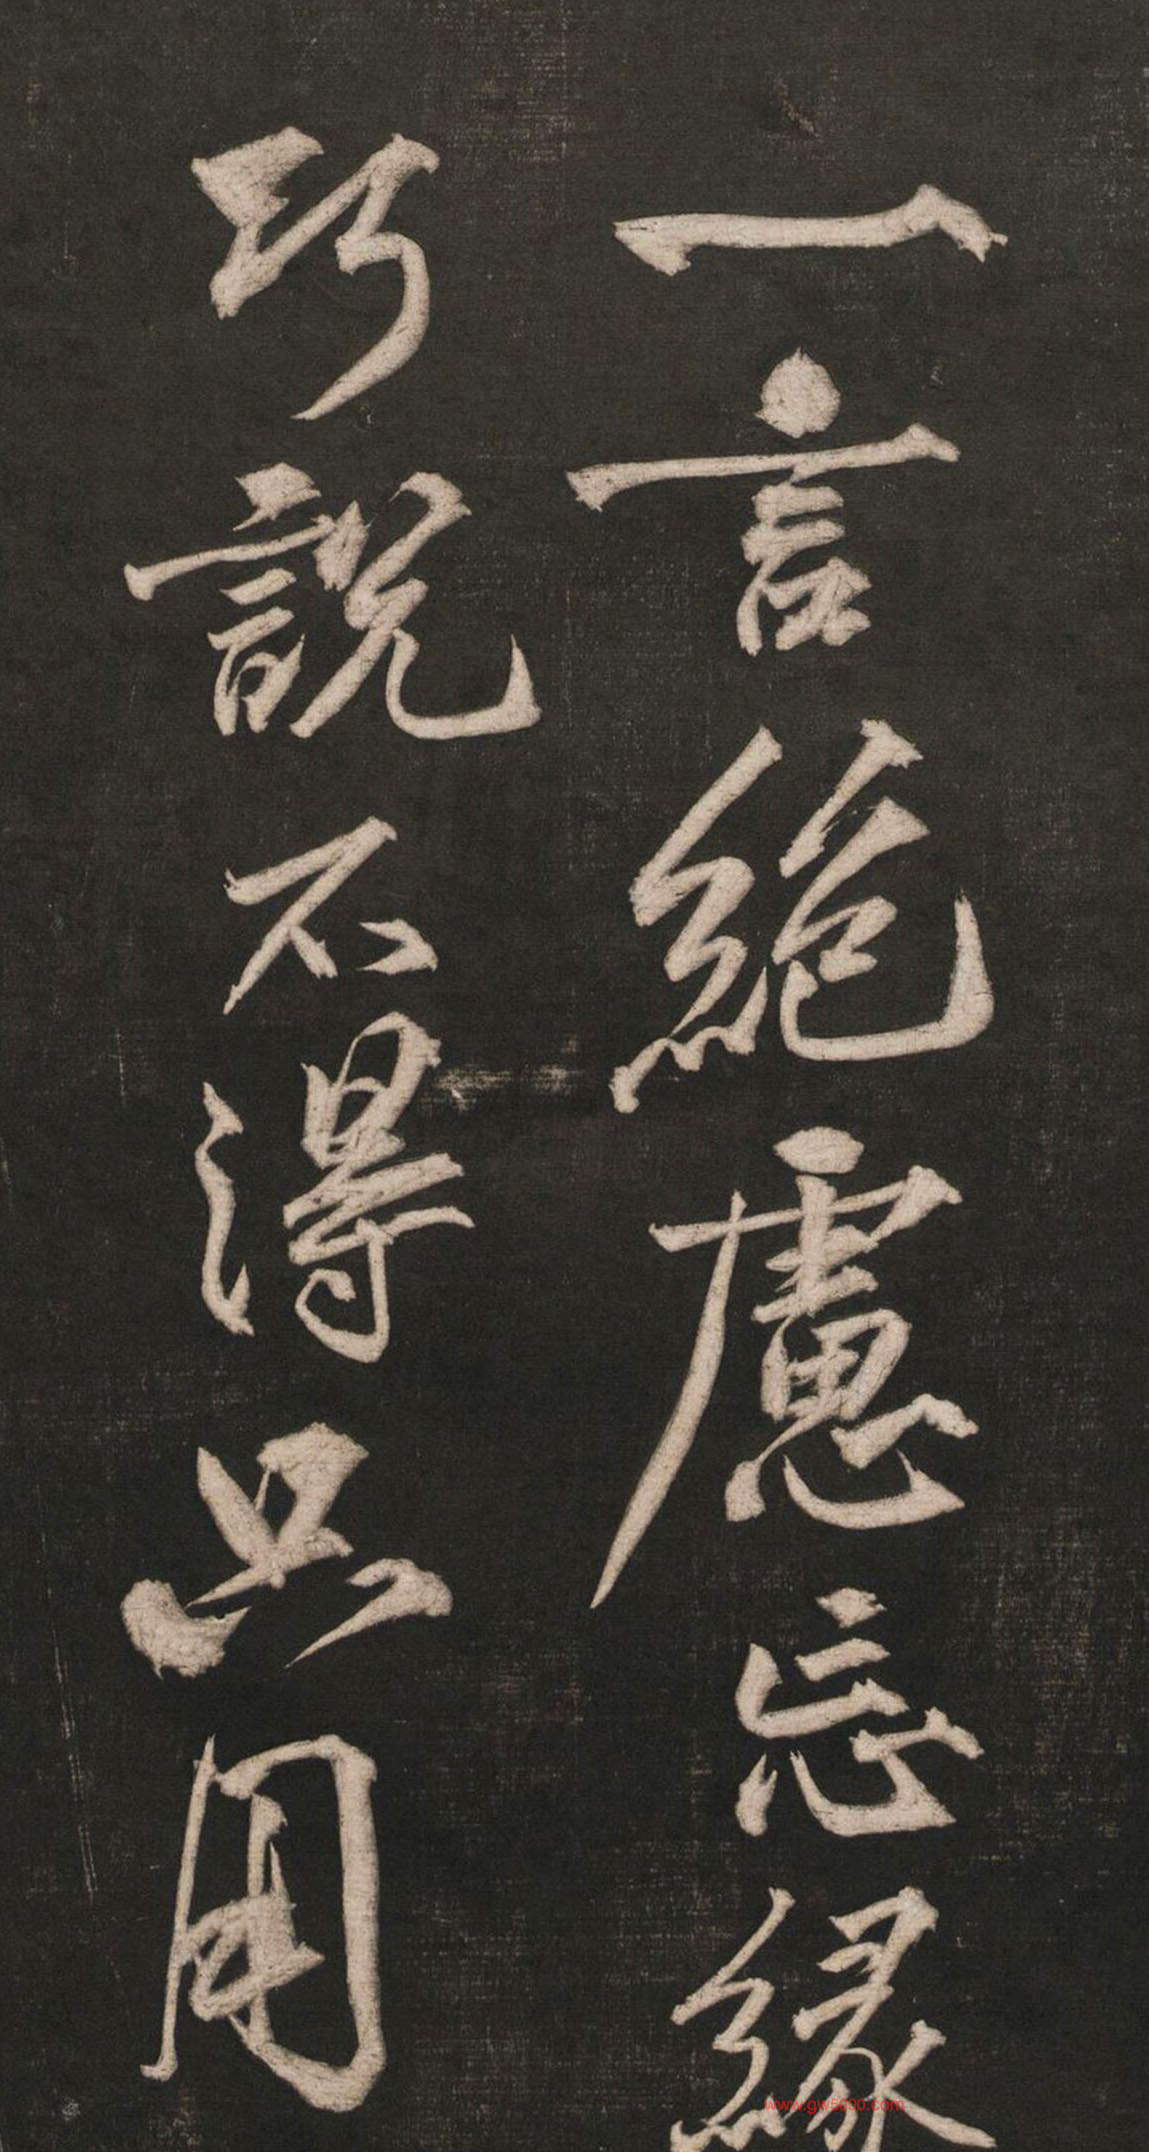 一言絶慮忘緣
巧説不得只用
www.gw5000.com